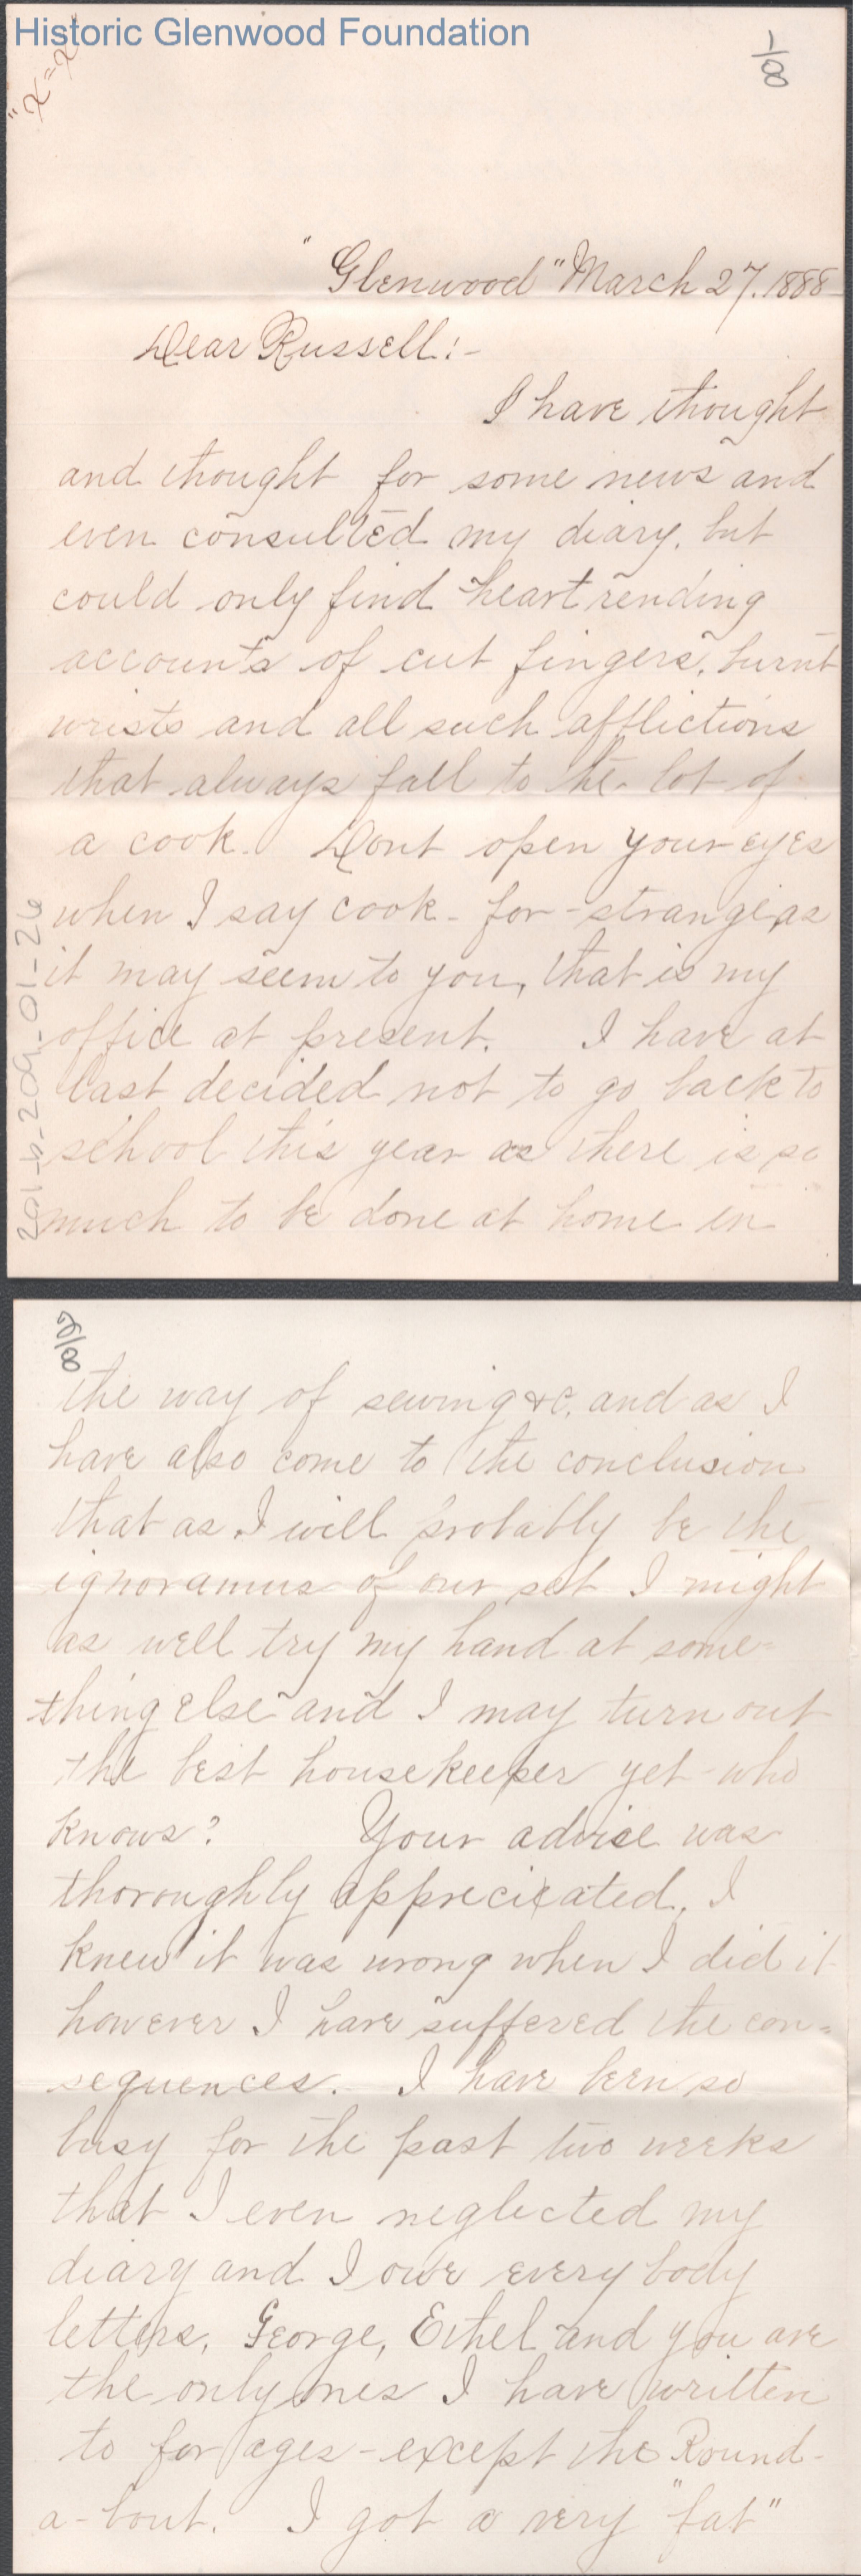 Historic Glenwood Foundation
1/8
"x=x"
"Glenwood" March 27. 1888
Dear Russell:-
I have thought
and thought for some news and
even consulted my diary, but
could only find heart rending
accounts of cut fingers, burnt
wrists and all such afflictions
that always fall to the lot of
a cook. Dont open your eyes
when I say cook - for - strange as
it may seem to you, that is my
office at present. I have at
last decided not to go back to
school this year as there is so
much to be done at home in
2/8
the way of sewing &c. and as I
have also come to the conclusion
that as I will probably be the
ignoramus of our set I might
as well try my hand at some=
thing else and I may turn out
the best housekeeper yet - who
knows? Your advice was
thoroughly appreciated, I
knew it was wrong when I did it
however I have suffered the con=
sequences. I have been so
busy for the past two weeks
that I even neglected my
diary and I owe every body
letters, George, Ethel and you are
the only ones I have written
to for ages - except the Round-
a-bout. I got a very "fat"